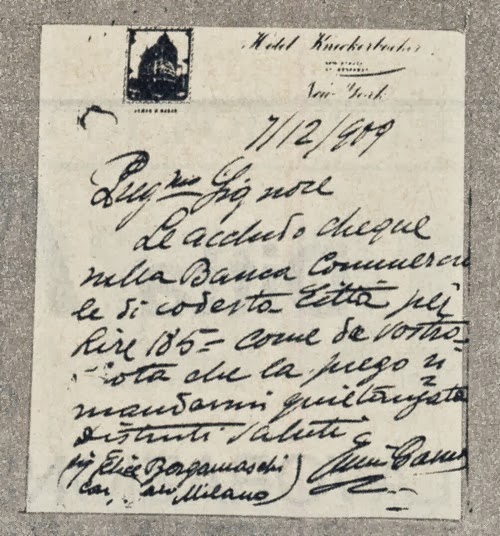 Hotel Knickerbocker
New York
7/12/909
Signore
Le accludo cheque
sulla Banca Commercia
le di codesta Città per
Lire 185= come da vostra
nota che la prego ri
mandarmi quietanzata
Distinti saluti
Sig Elice Bergamaschi
Milano